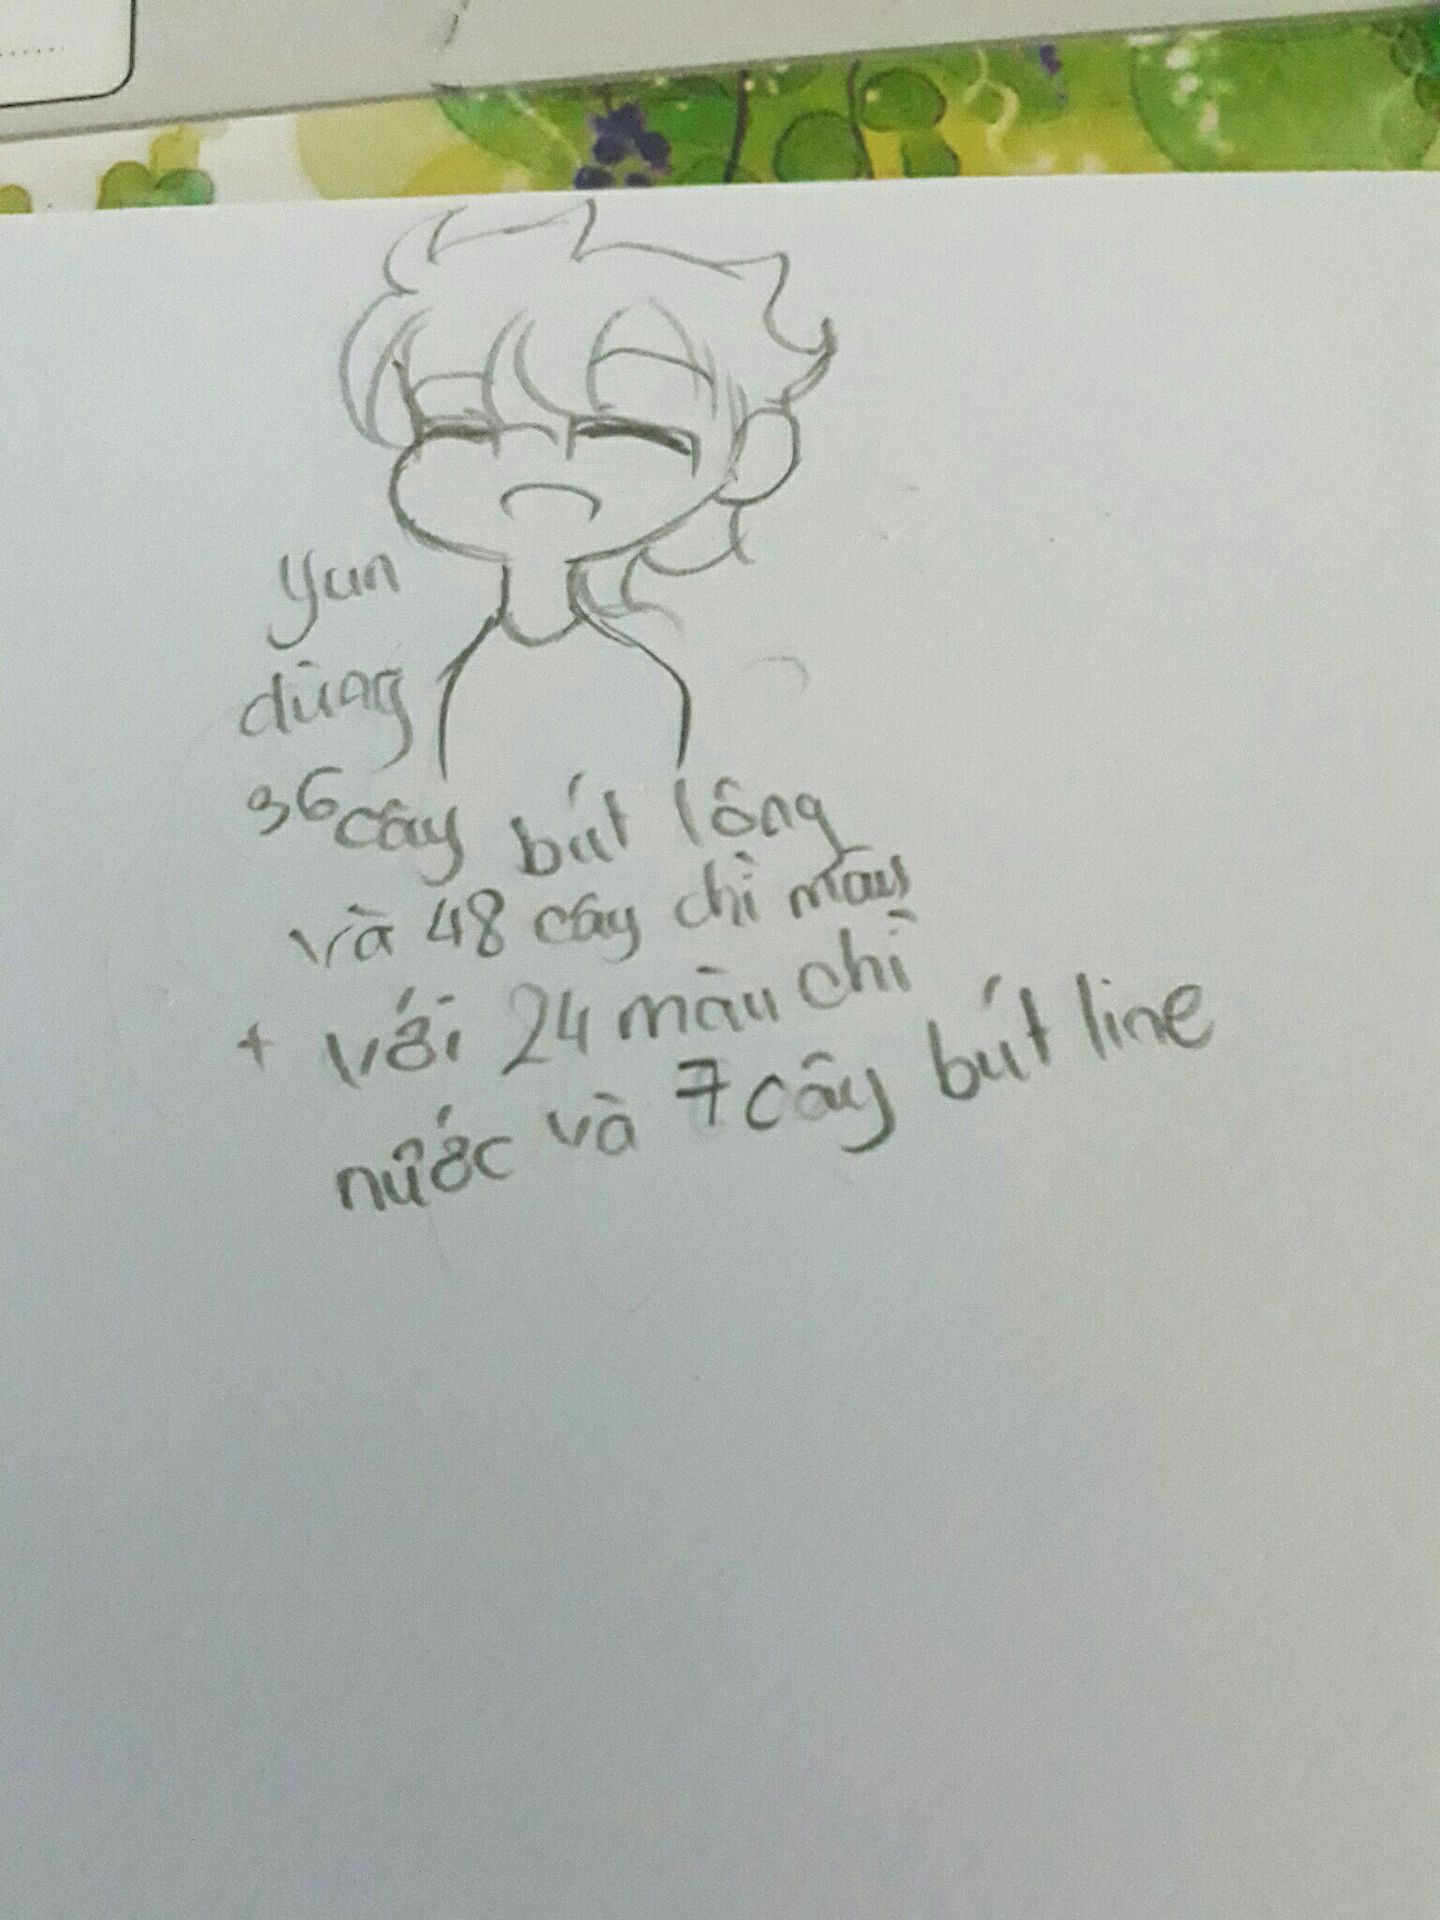 yun
dùng
36 cây bút lông
và 48 cây chì màu
+ với 24 màu chì
nước và 7 cây bút line